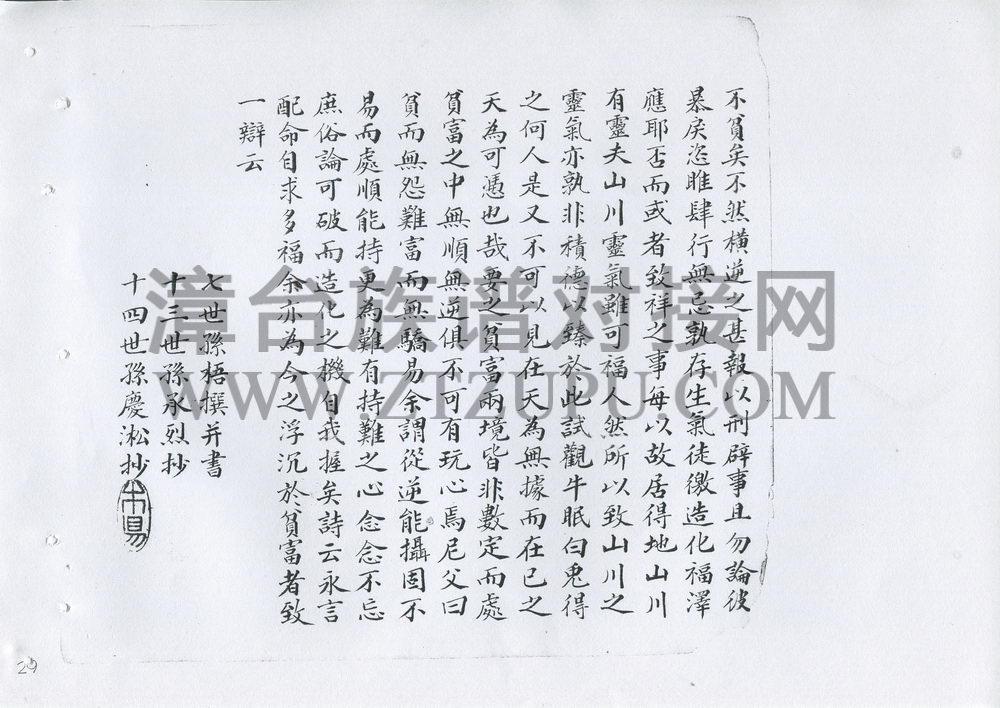 不貧矣不然橫逆之甚報以刑辟事且勿論彼
暴戾恣睢肆行無忌孰存生氣徒徼造化福澤
應耶否而或者致祥之事每以故居得地山川
有靈夫山川靈氣雖可福人然所以致山川之
靈氣亦孰非積德以臻於此試觀牛眠白兎得
之何人是又不可以見在天為無據而在已之
天為可憑也哉要之貧富兩境皆非數定而處
貧富之中無順無逆俱不可有玩心焉尼父曰
貧而無怨難富而無驕易余謂從逆能攝固不
易而處順能持更為難有持難之心念念不忘
庶俗論可破而造化之機自我握矣詩云永言
配命自求多福余亦為今之浮沉於貧富者致
一辯云
七世孫梧撰并書
十三世孫承烈抄
十四世孫慶淞抄
漳台族谱对接网
WWW.ZTZUPU.COM
29